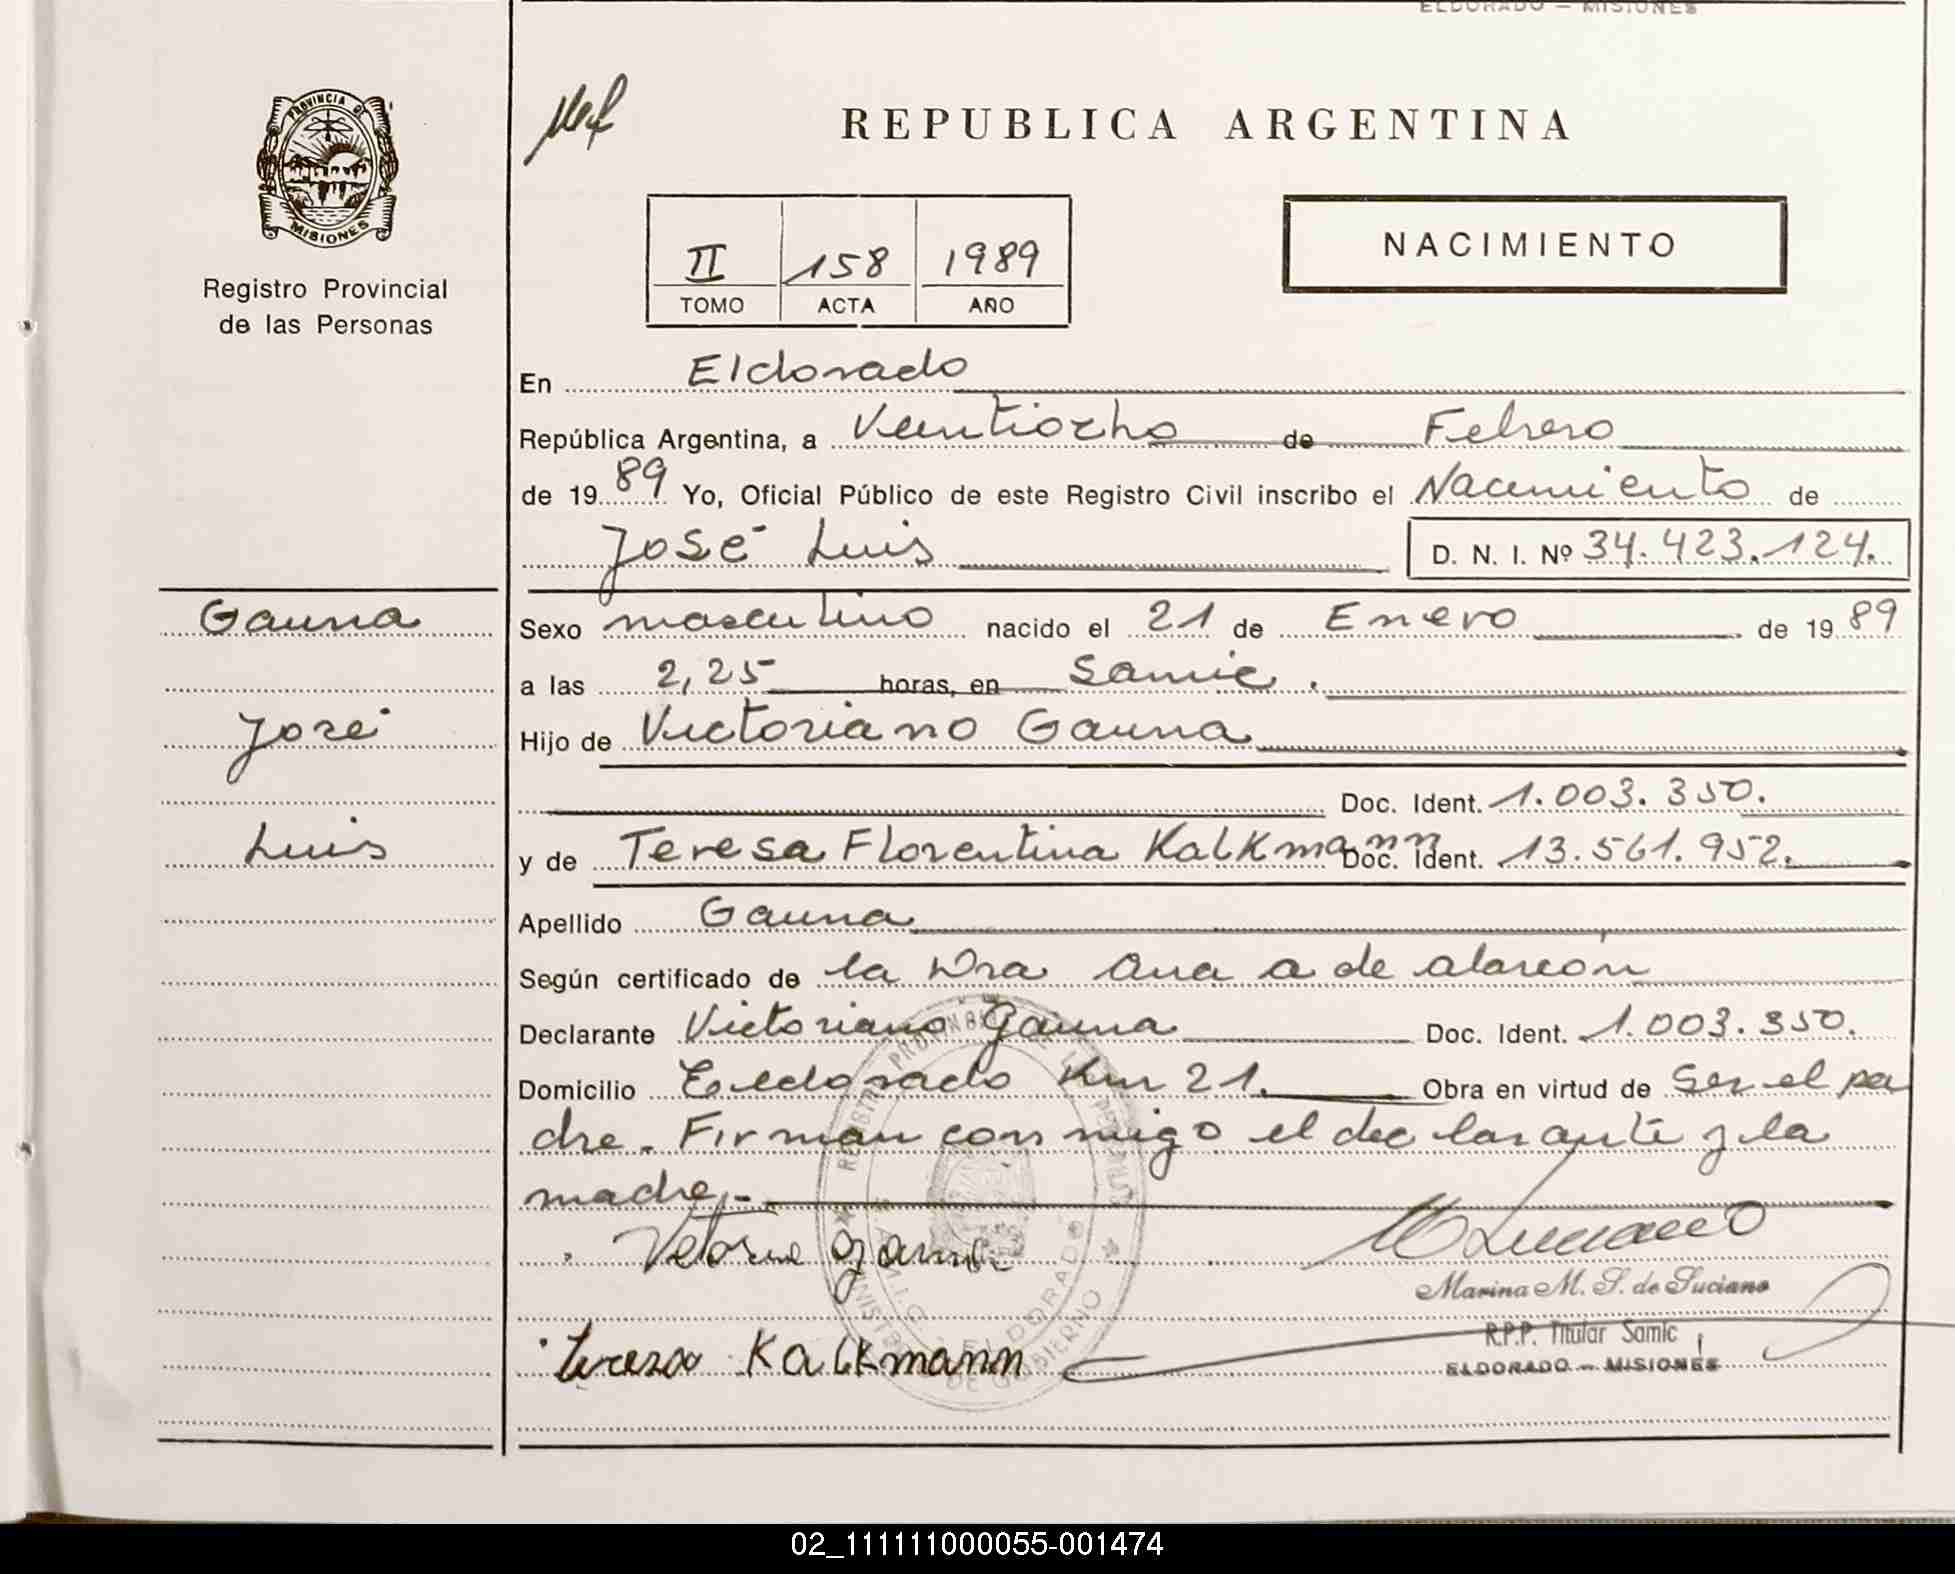 ELDORADO — MISIONES
PROVINCIA DE
MISIONES
Registro Provincial
de las Personas
REPUBLICA ARGENTINA
II 158 1989
TOMO ACTA AÑO
NACIMIENTO
En Eldorado
República Argentina, a Veintiocho de Febrero
de 1989 Yo, Oficial Público de este Registro Civil inscribo el Nacimiento de
José Luis D. N. I. Nº 34.423.124.
Gauna
José
Luis
Sexo masculino nacido el 21 de Enero de 1989
a las 2,25 horas, en Samic.
Hijo de Victoriano Gauna
Doc. Ident. 1.003.350.
y de Teresa Florentina Kalkmann Doc. Ident. 13.561.952.
Apellido Gauna
Según certificado de la Dra Ana A de Alarcón
Declarante Victoriano Gauna Doc. Ident. 1.003.350.
Domicilio Eldorado Km 21. Obra en virtud de Ser el pa
dre. Firman conmigo el declarante y la
madre.-
Marina M. S. de Luciano
R.P.P. Titular Samic
Teresa Kalkmann
ELDORADO — MISIONES
02_111111000055-001474